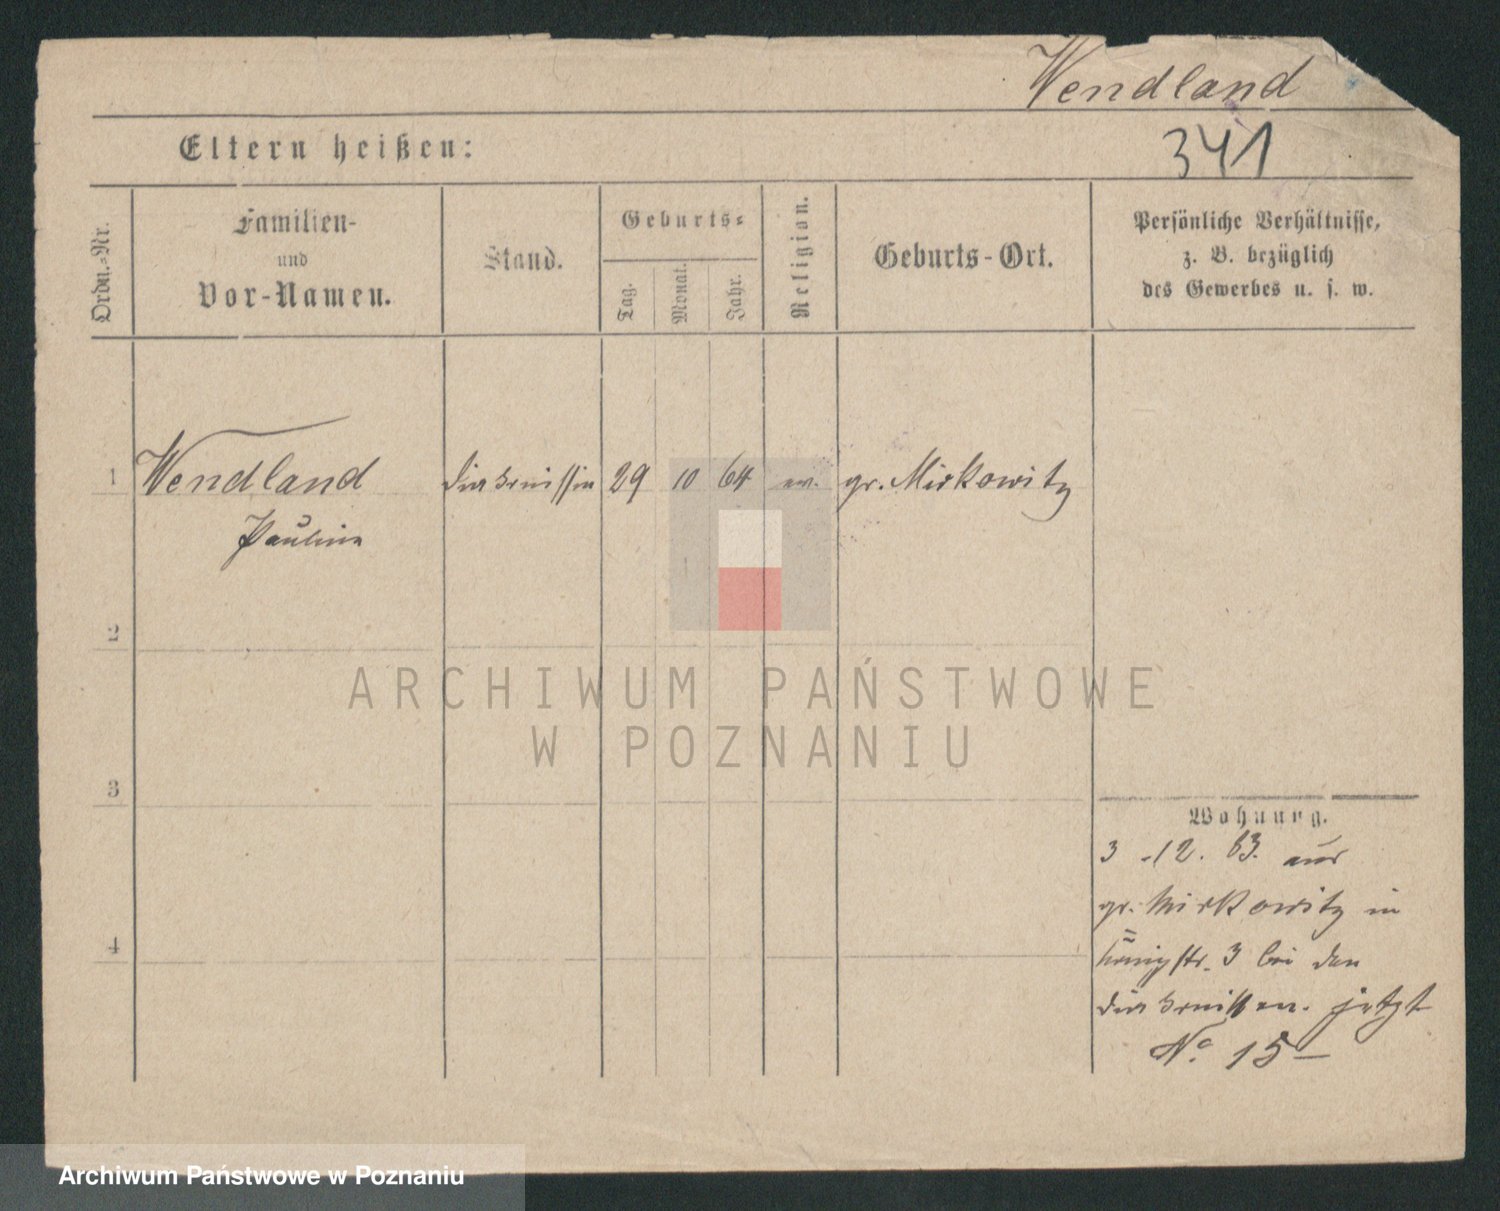 Wendland
Eltern heißen:
341
Ordn.-Nr.
Familien-
und
Vor-Namen.
Stand.
Geburts-
Tag.
Monat.
Jahr.
Religion.
Geburts-Ort.
Persönliche Verhältnisse,
z. B. bezüglich
des Gewerbes u. s. w.
1 Wendland Diakonissin 29 10 64 ev. gr. Mirkowitz
Pauline
2
ARCHIWUM PAŃSTWOWE
W POZNANIU
3
Wohnung.
3 -12. 83. aus
gr. Mirkowitz in
Königstr. 3 bei den
Diakonissen. jetzt
No. 15 —
4
Archiwum Państwowe w Poznaniu